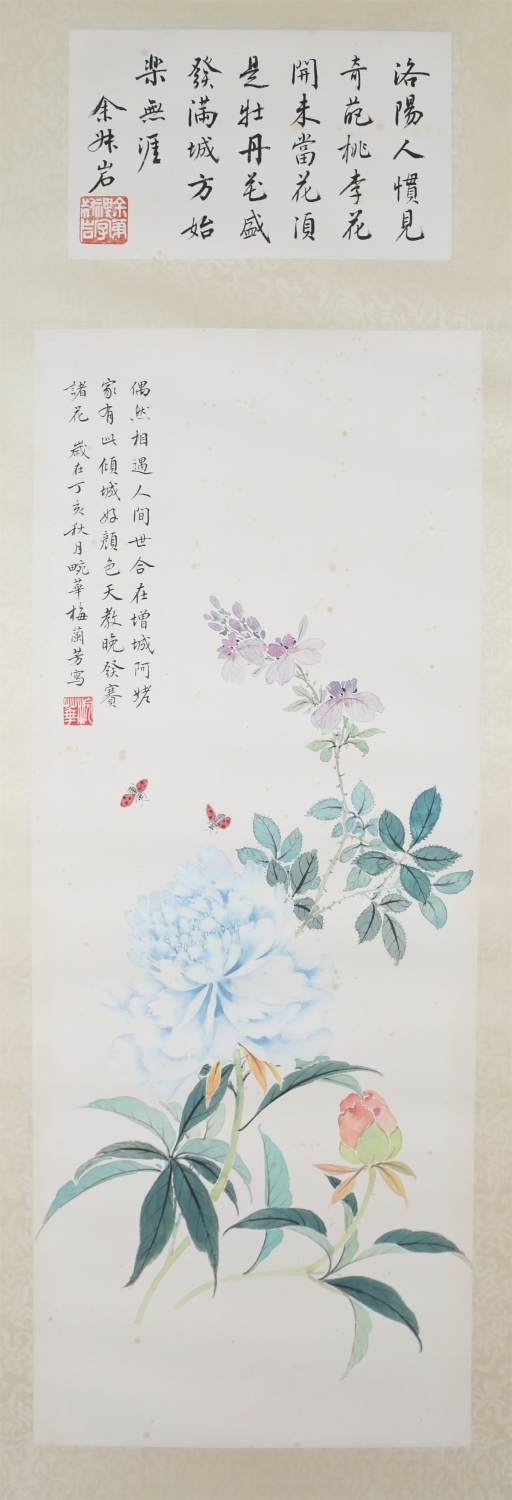 洛陽人慣見
奇葩桃李花
開未當花須
是牡丹花盛
發滿城方始
樂無涯
余姝岩
偶然相遇人間世合在增城阿姥
家有此傾城好顏色天教晚發賽
諸花 歲在丁亥秋月畹華梅蘭芳寫
畹華